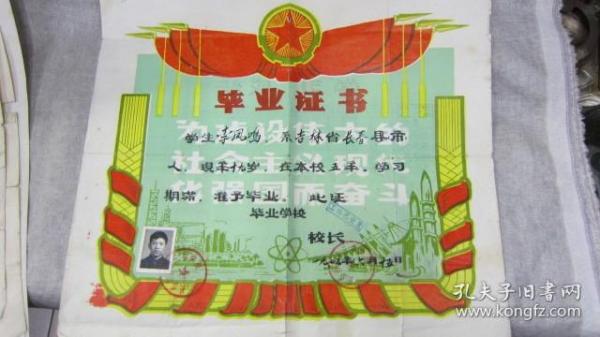 毕业证书
为建设伟大的
社会主义现代
化强国而奋斗
学生李凤鸣 系吉林省长春县市
人，现年 岁，在本校五年 学习
期满，准予毕业，此证
毕业学校
校长
孔夫子旧书网
www.kongfz.com